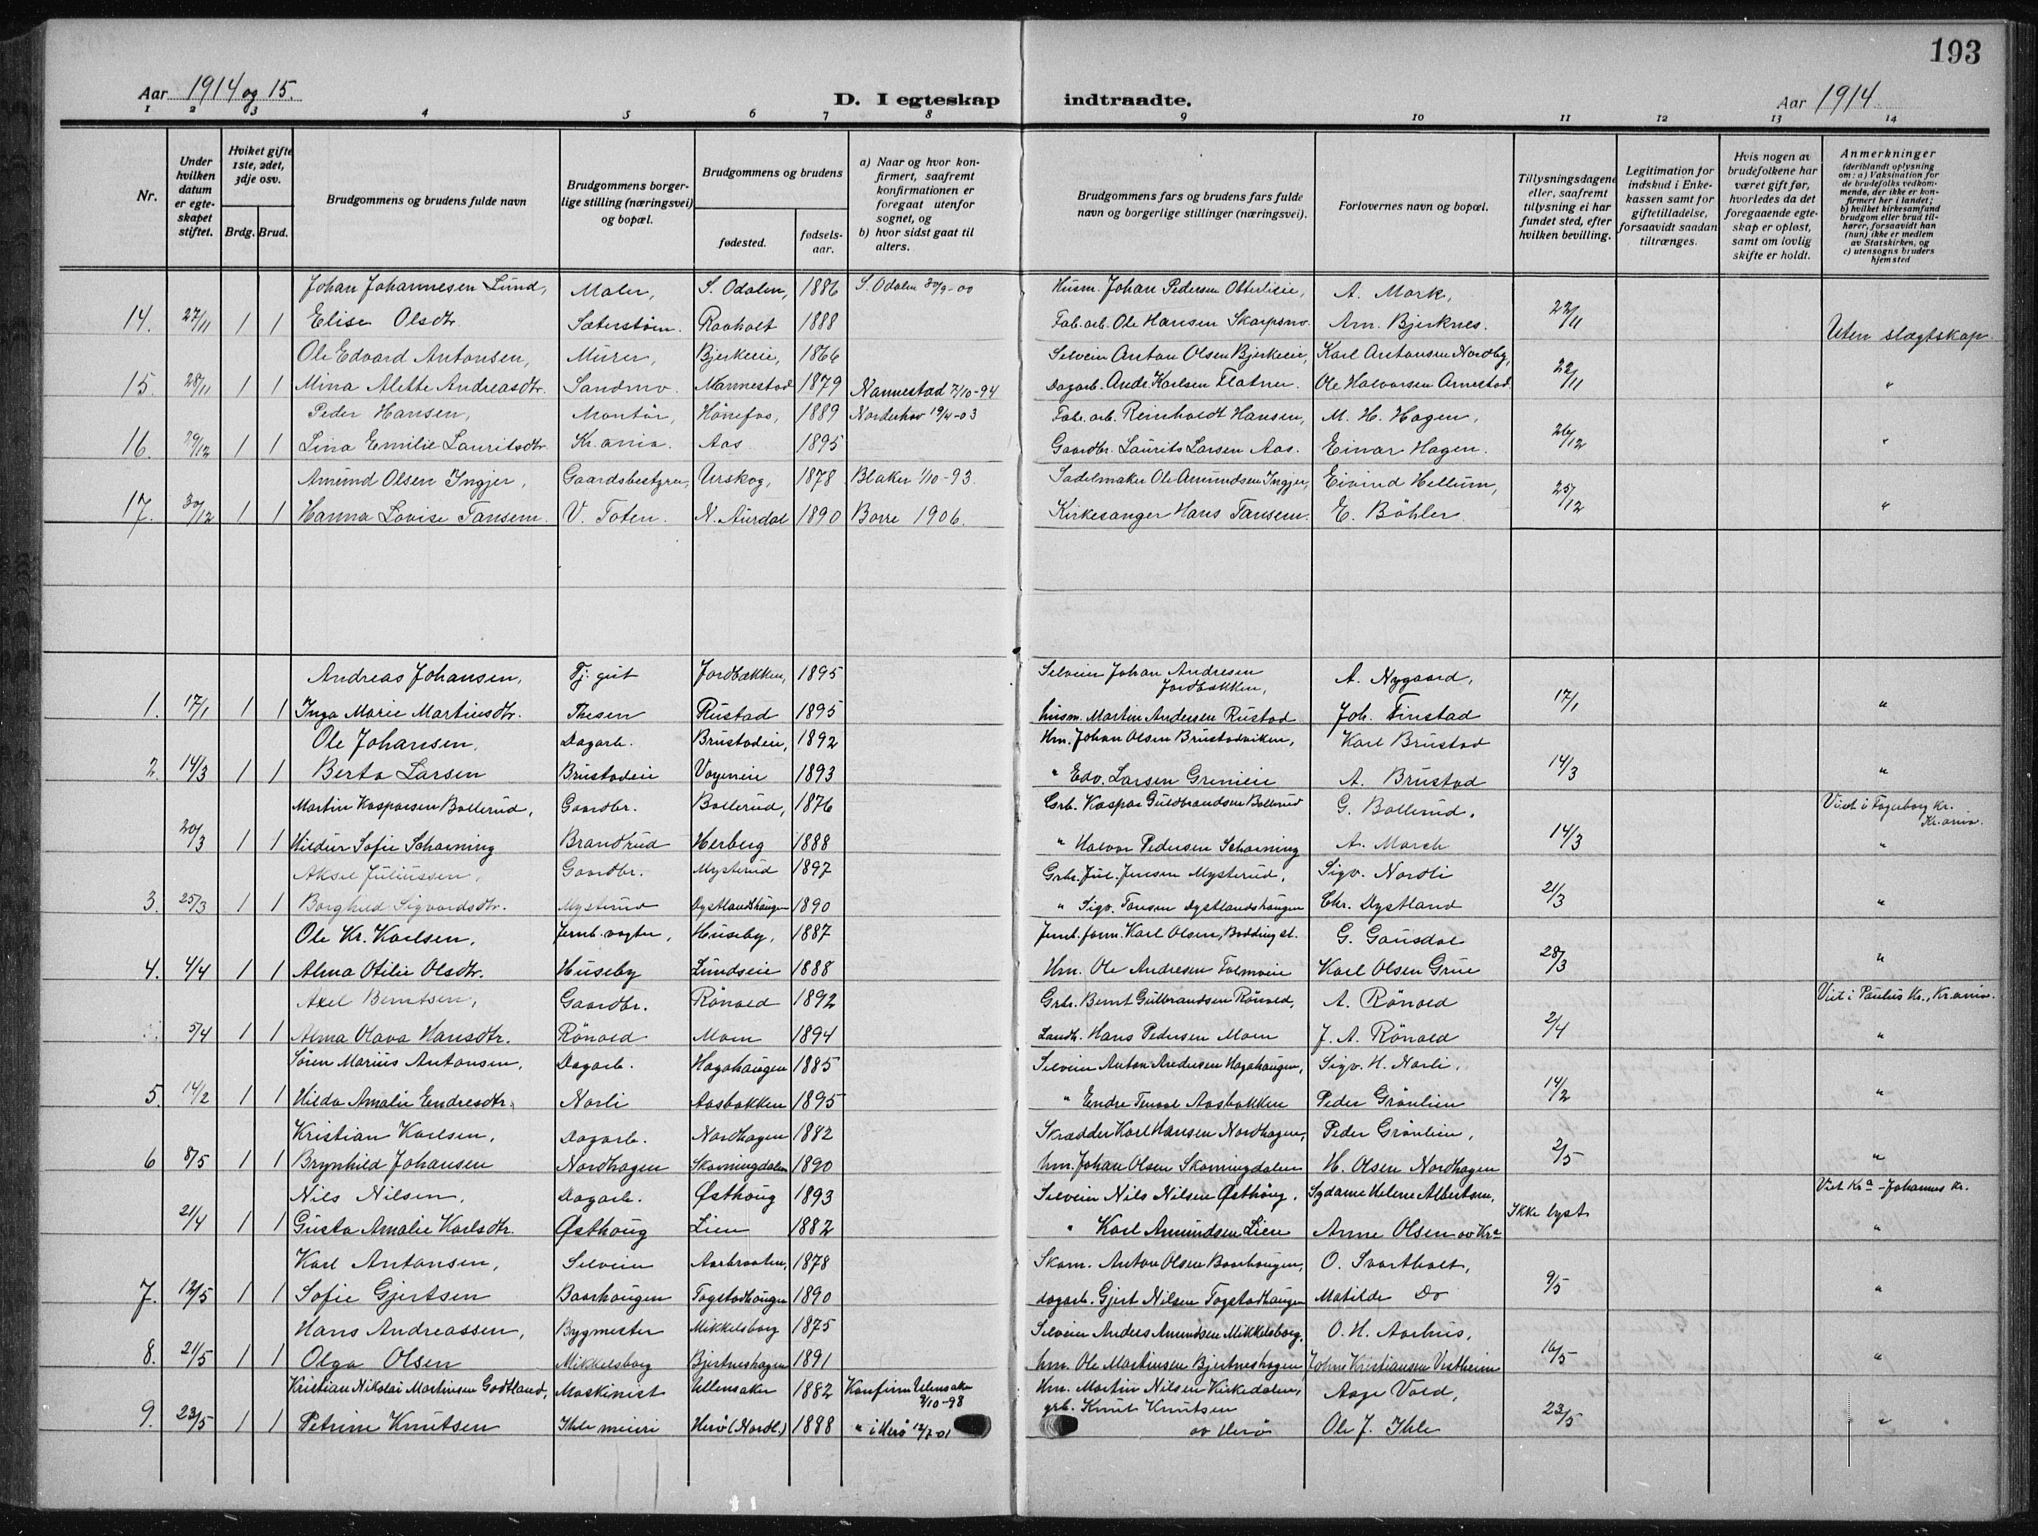 193
Aar 1914 og 15.
D. I egteskap indtraadte.
Aar 1914
1 2 3 4 5 6 7 8 9 10 11 12 13 14
Nr.
Under hvilken datum er egteskapet stiftet.
Hviket gifte 1ste, 2det, 3dje osv.
Brdg. Brud.
Brudgommens og brudens fulde navn
Brudgommens borgerlige stilling (næringsvei) og bopæl.
Brudgommens og brudens
fødested. fødselsaar.
a) Naar og hvor konfirmert, saafremt konfirmationen er foregaat utenfor sognet, og
b) hvor sidst gaat til alters.
Brudgommens fars og brudens fars fulde navn og borgerlige stillinger (næringsvei).
Forlovernes navn og bopæl.
Tillysningsdagene eller, saafremt tillysning ei har fundet sted, efter hvilken bevilling.
Legitimation for indskud i Enkekassen samt for giftetilladelse, forsaavidt saadan tiltrænges.
Hvis nogen av brudefolkene har været gift før, hvorledes da det foregaaende egteskap er opløst, samt om lovlig skifte er holdt.
Anmerkninger
(deriblandt oplysning om: a) Vaksination for de brudefolks vedkommende, der ikke er konfirmert her i landet; b) hvilket kirkesamfund brudgom eller brud tilhører, forsaavidt han (hun) ikke er medlem av Statskirken, og c) utensogns bruders hjemsted
Johan Johannesen Lund, Maler, S. Odalen, 1886 S. Odalen 30/9-00 Husm. Johan Pedersen Otterlieie, A. Mork,
14. 27/11 1 1 Elise Olsdtr Sæterstøen. Raaholt 1888 Fab. arb. Ole Hansen Skarpsno. Am. Bjerknes. 22/11 Uten slægtskap.
Ole Edvard Antonsen, Murer, Bjerkeie, 1866 Selveier Anton Olsen Bjerkeie, Karl Antonsen Nordby,
15. 28/11 1 1 Mina Alette Andreasdtr. Sandmo. Nannestad 1879 Nannestad 7/10-94 Dagarb. Andr. Karlsen Flatner. Ole Halvorsen Arnestad 22/11 "
Peder Hansen, Montør, Hønefos, 1889 Norderhov 19/4-03 Fabr. arb. Reinholdt Hansen, M. H. Hagen,
16. 29/12 1 1 Lina Emilie Lauritsdtr. Kr.ania. Aas 1895 Gaardbr. Laurits Larsen Aas. Einar Hagen. 26/12 "
Amund Olsen Ingjer, Gaardsbestyrer, Urskog, 1878 Blaker 1/10-93. Sadelmaker Ole Amundsen Ingjer, Eivind Hellum,
17. 30/12 1 1 Hanna Lovise Tansem. V. Toten. N. Aurdal 1890 Borre 1906. Kirkesanger Hans Tansem. E. Bøhler. 25/12 "
Andreas Johansen, Tj. gut Jordbakken, 1895 Selveier Johan Andresen Jordbakken, A. Nygaard,
1. 17/1 1 1 Inga Marie Martinsdtr. Thesen Rustad 1895 husm. Martin Andersen Rustad Joh. Finstad 17/1 "
Ole Johansen, Dagarb. Brustadeie, 1892 Hm. Johan Olsen Brustadviken, Karl Brustad
2. 14/3 1 1 Berta Larsen Brustadeie Vogneie 1893 " Edv. Larsen Grenieie A. Brustad 14/3 "
Martin Kasparsen Bollerud, Gaardbr. Bollerud, 1876 Grb. Kaspar Guldbrandsen Bollerud G. Bollerud. Viet i Fagerborg Kr. Kr.ania.
20/3 1 1 Hildur Sofie Scharning Brandrud Herberg 1888 " Halvor Pedersen Scharning A. March 14/3 "
Aksel Juliussen, Gaardbr. Mysterud 1897 Grbr. Jul. Jensen Mysterud, Sigv. Nordli
3. 25/3 1 1 Borghild Sigvardsdtr. Mysterud Dystlandshaugen 1890 " Sigv. Tansen Dystlandshaugen Chr. Dystland 21/3 "
Ole Kr. Karlsen, Jernb. vogter, Huseby, 1887 Jernb. form. Karl Olsen, Bodding st. G. Gausdal
4. 4/4 1 1 Alma Otilie Olsdtr. Huseby Lundseie 1888 Hm. Ole Andresen Tolmoeie Karl Olsen Grue 28/3 "
Axel Berntsen, Gaardbr. Rønold 1892 Grb. Bernt Gulbrandsen Rønold, A. Rønold Viet i Paulus Kr., Kr.ania.
5/4 1 1 Alma Olava Hansdtr. Rønold Mom 1894 Landh. Hans Pedersen Mom J. A. Rønold 2/4 "
Søren Marius Antonsen, Dagarb. Hagahaugen 1885 Selveier Anton Andersen Hagahaugen, Sigv. H. Narli,
5. 14/2 1 1 Hilda Amalie Endresdtr. Narli Aasbakken 1895 " Endre Aasbakken Peder Grønlien 14/2 "
Kristian Karlsen, Dagarb. Nordhagen 1882 Skrædder Karl Hansen Nordhagen, Peder Grønlien,
6 8/5 1 1 Brynhild Johansen Nordhagen Skarningdalen 1890 hm. Johan Olsen Skarningdalen H. Olsen Nordhagen 2/5 "
Nils Nilsen, Dagarb. Østhaug 1893 Selveier Nils Nilsen Østhaug, Sydame Helene Albertsen, Viet Kra - Johannes Kr.
21/4 1 1 Gusta Amalie Karlsdtr. Østhaug Lien 1882 " Karl Amundsen Lien Anne Olsen av Kra Ikke lyst "
Karl Antonsen, Selveier Aarbraaten, 1878 Skom. Anton Olsen Baarhaugen, O. Svartholt,
7. 12/5 1 1 Sofie Gjertsen Baarhaugen Fagstadhaugen 1890 dagarb. Gjert Nilsen Fagstadhaugen Matilde Do 9/5 "
Hans Andreassen, Bygmester Mikkelsborg 1875 Selveier Anders Amundsen Mikkelsborg, O. H. Aarhus,
8. 21/5 1 1 Olga Olsen Mikkelsborg Bjertneshagen 1891 hm. Ole Martinsen Bjertneshagen Johne Kristiansen Vestheim 16/5 "
Kristian Nikolai Martinsen Godtland, Maskinist Ullensaker 1882 Konfirm Ullensaker 2/10-98 Hm. Martin Nilsen Kirkedalen, Aage Vold,
9. 23/5 1 1 Petrine Knutsen Ihle meieri Herø (Nordl.) 1888 " i Herø 12/7-01 grb. Knut Knutsen av Herø Ole J. Ihle 23/5 "